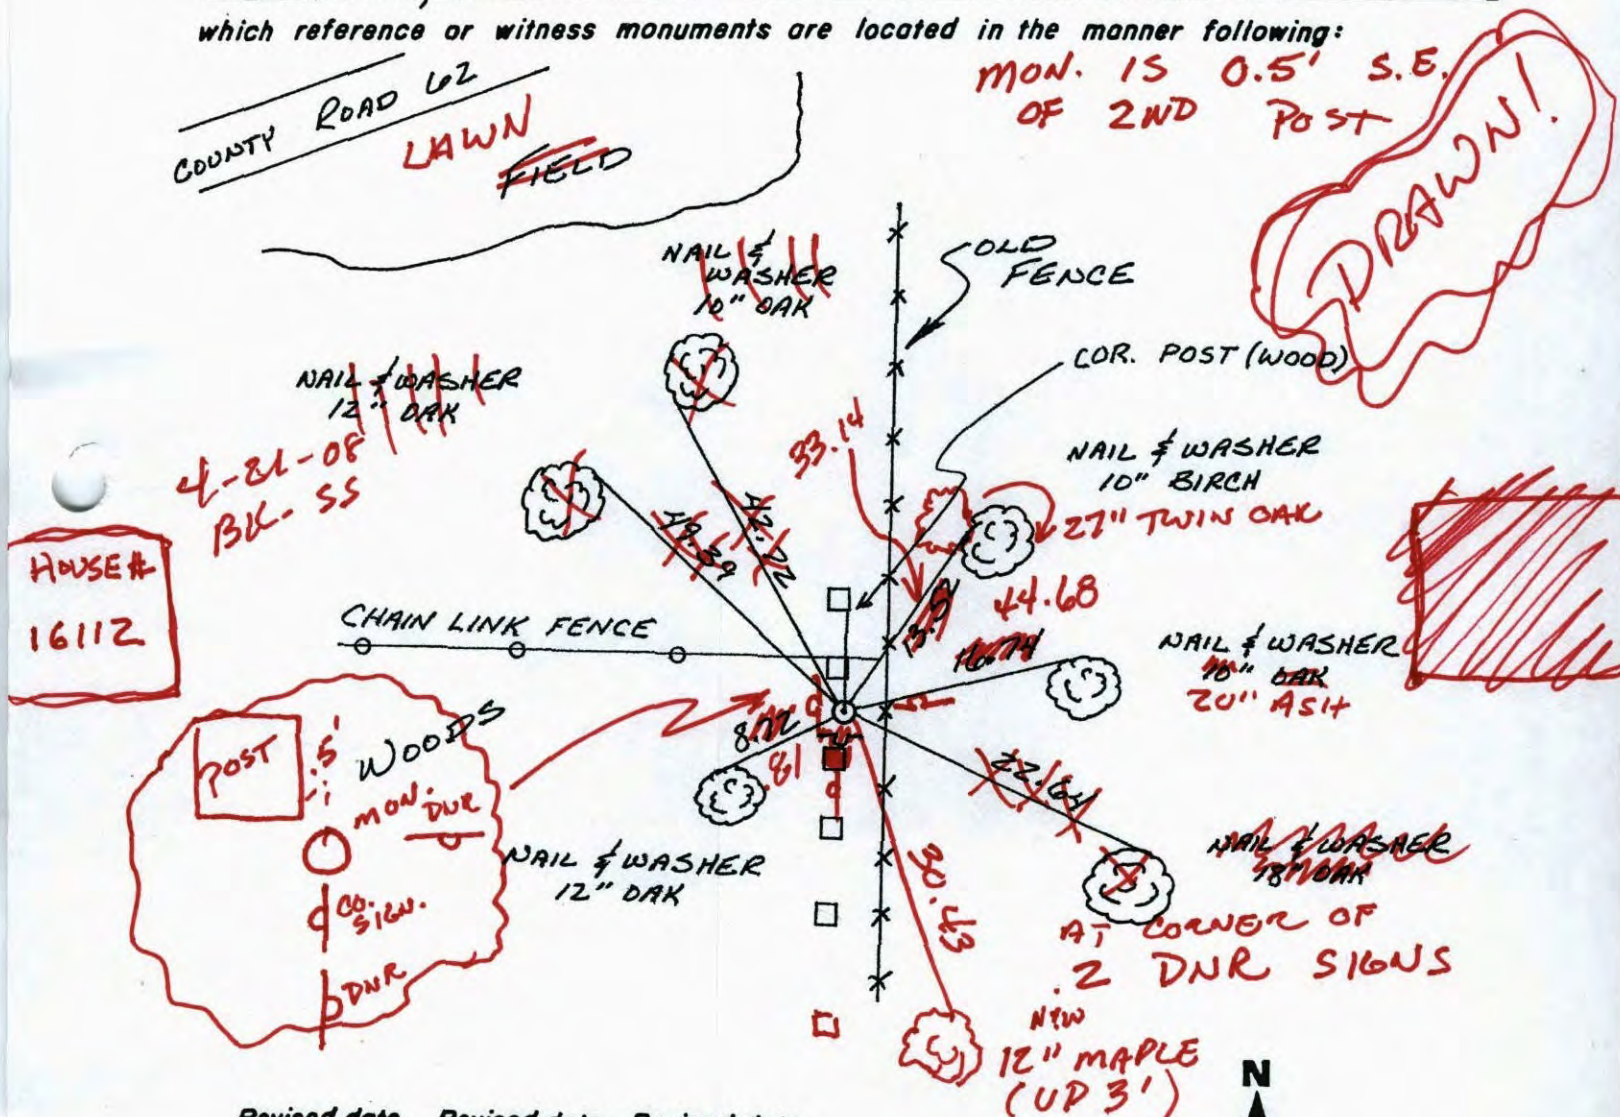 which reference or witness monuments are located in the manner following:
MON. IS 0.5' S.E.
OF 2ND POST
DRAWN!
COUNTY ROAD 62
LAWN
FIELD
NAIL & WASHER
10" OAK
OLD
FENCE
COR. POST (WOOD)
NAIL & WASHER
12" OAK
33.14
NAIL & WASHER
10" BIRCH
27" TWIN OAK
4-21-08
BK- SS
49.39
42.72
HOUSE#
16112
CHAIN LINK FENCE
44.68
16.74
NAIL & WASHER
10" OAK
20" ASH
POST
.5'
WOODS
MON.
DNR
CO.
SIGN.
DNR
8.72
.81
22.64
NAIL & WASHER
12" OAK
NAIL & WASHER
18" OAK
AT CORNER OF
2 DNR SIGNS
30.43
N&W
12" MAPLE
(UP 3')
N